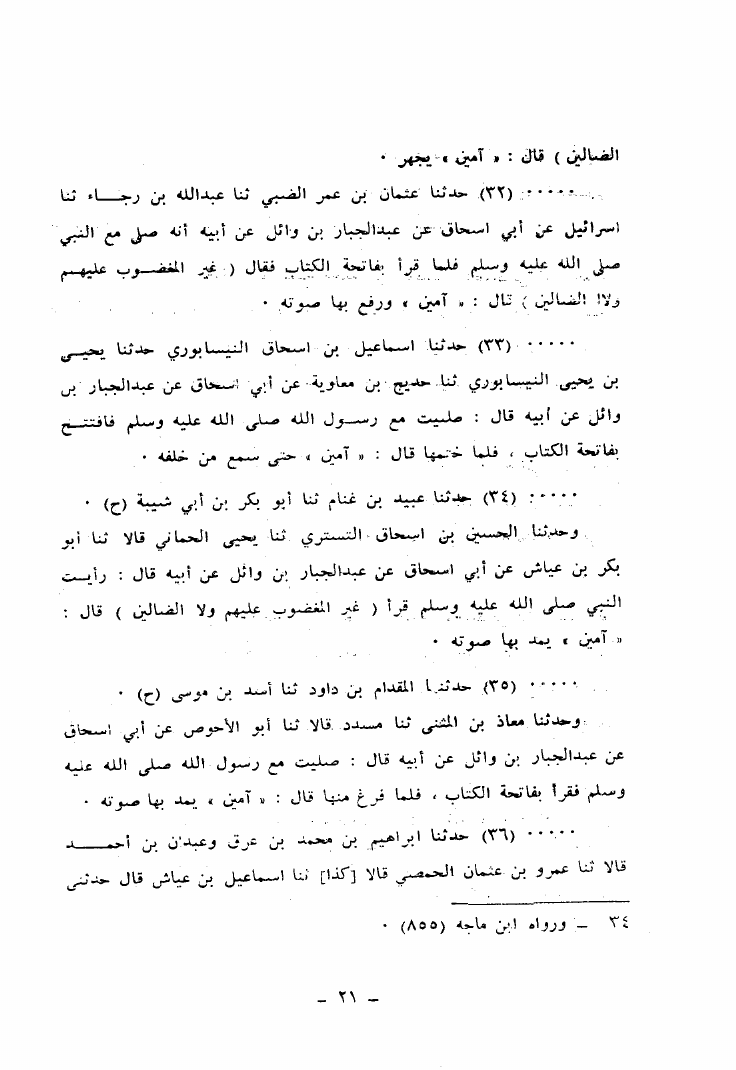 الضالين ) قال : « آمين » يجهر ٠
٠٠٠٠٠ (٣٢) حدثنا عثمان بن عمر الضبي ثنا عبدالله بن رجـــاء ثنا
اسرائيل عن أبي اسحاق عن عبدالجبار بن وائل عن أبيه أنه صلى مع النبي
صلى الله عليه وسلم فلما قرأ بفاتحة الكتاب فقال ( غير المغضــوب عليهــم
ولا الضالين ) قال : « آمين » ورفع بها صوته ٠
٠٠٠٠٠ (٣٣) حدثنا اسماعيل بن اسحاق النيسابوري حدثنا يحيــى
بن يحيى النيسابوري ثنا حديج بن معاوية عن أبي اسحاق عن عبدالجبار بن
وائل عن أبيه قال : صليت مع رســول الله صلى الله عليه وسلم فافتتـــح
بفاتحة الكتاب ، فلما ختمها قال : « آمين » حتى سمع من خلفه ٠
٠٠٠٠٠ (٣٤) حدثنا عبيد بن غنام ثنا أبو بكر بن أبي شيبة (ح) ٠
وحدثنا الحسين بن اسحاق التستري ثنا يحيى الحماني قالا ثنا أبو
بكر بن عياش عن أبي اسحاق عن عبدالجبار بن وائل عن أبيه قال : رأيــت
النبي صلى الله عليه وسلم قرأ ( غير المغضوب عليهم ولا الضالين ) قال :
« آمين » يمد بها صوته ٠
٠٠٠٠٠ (٣٥) حدثنا المقدام بن داود ثنا أسد بن موسى (ح) ٠
وحدثنا معاذ بن المثنى ثنا مسدد قالا ثنا أبو الأحوص عن أبي اسحاق
عن عبدالجبار بن وائل عن أبيه قال : صليت مع رسول الله صلى الله عليه
وسلم فقرأ بفاتحة الكتاب ، فلما فرغ منها قال : « آمين » يمد بها صوته ٠
٠٠٠٠٠ (٣٦) حدثنا ابراهيم بن محمد بن عرق وعبدان بن أحمـــــد
قالا ثنا عمرو بن عثمان الحمصي قالا [كذا] ثنا اسماعيل بن عياش قال حدثني
٣٤ – ورواه ابن ماجه (٨٥٥) ٠
– ٢١ –